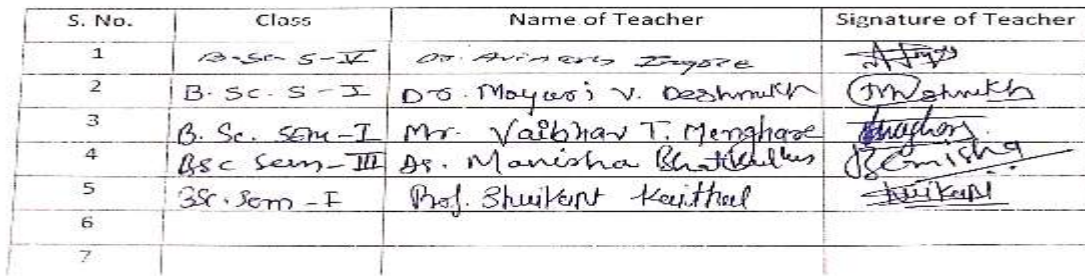 S. No. Class Name of Teacher Signature of Teacher
1 B.Sc. S-V Dr. Avinash Ingole
2 B. Sc. S-I Dr. Mayuri V. Deshmukh
3 B. Sc. Sem-I Mr. Vaibhav T. Menghare
4 BSc Sem-III Dr. Manisha
5 BSc. Sem-I Prof. Shrikant Kaithal Shrikant
6
7